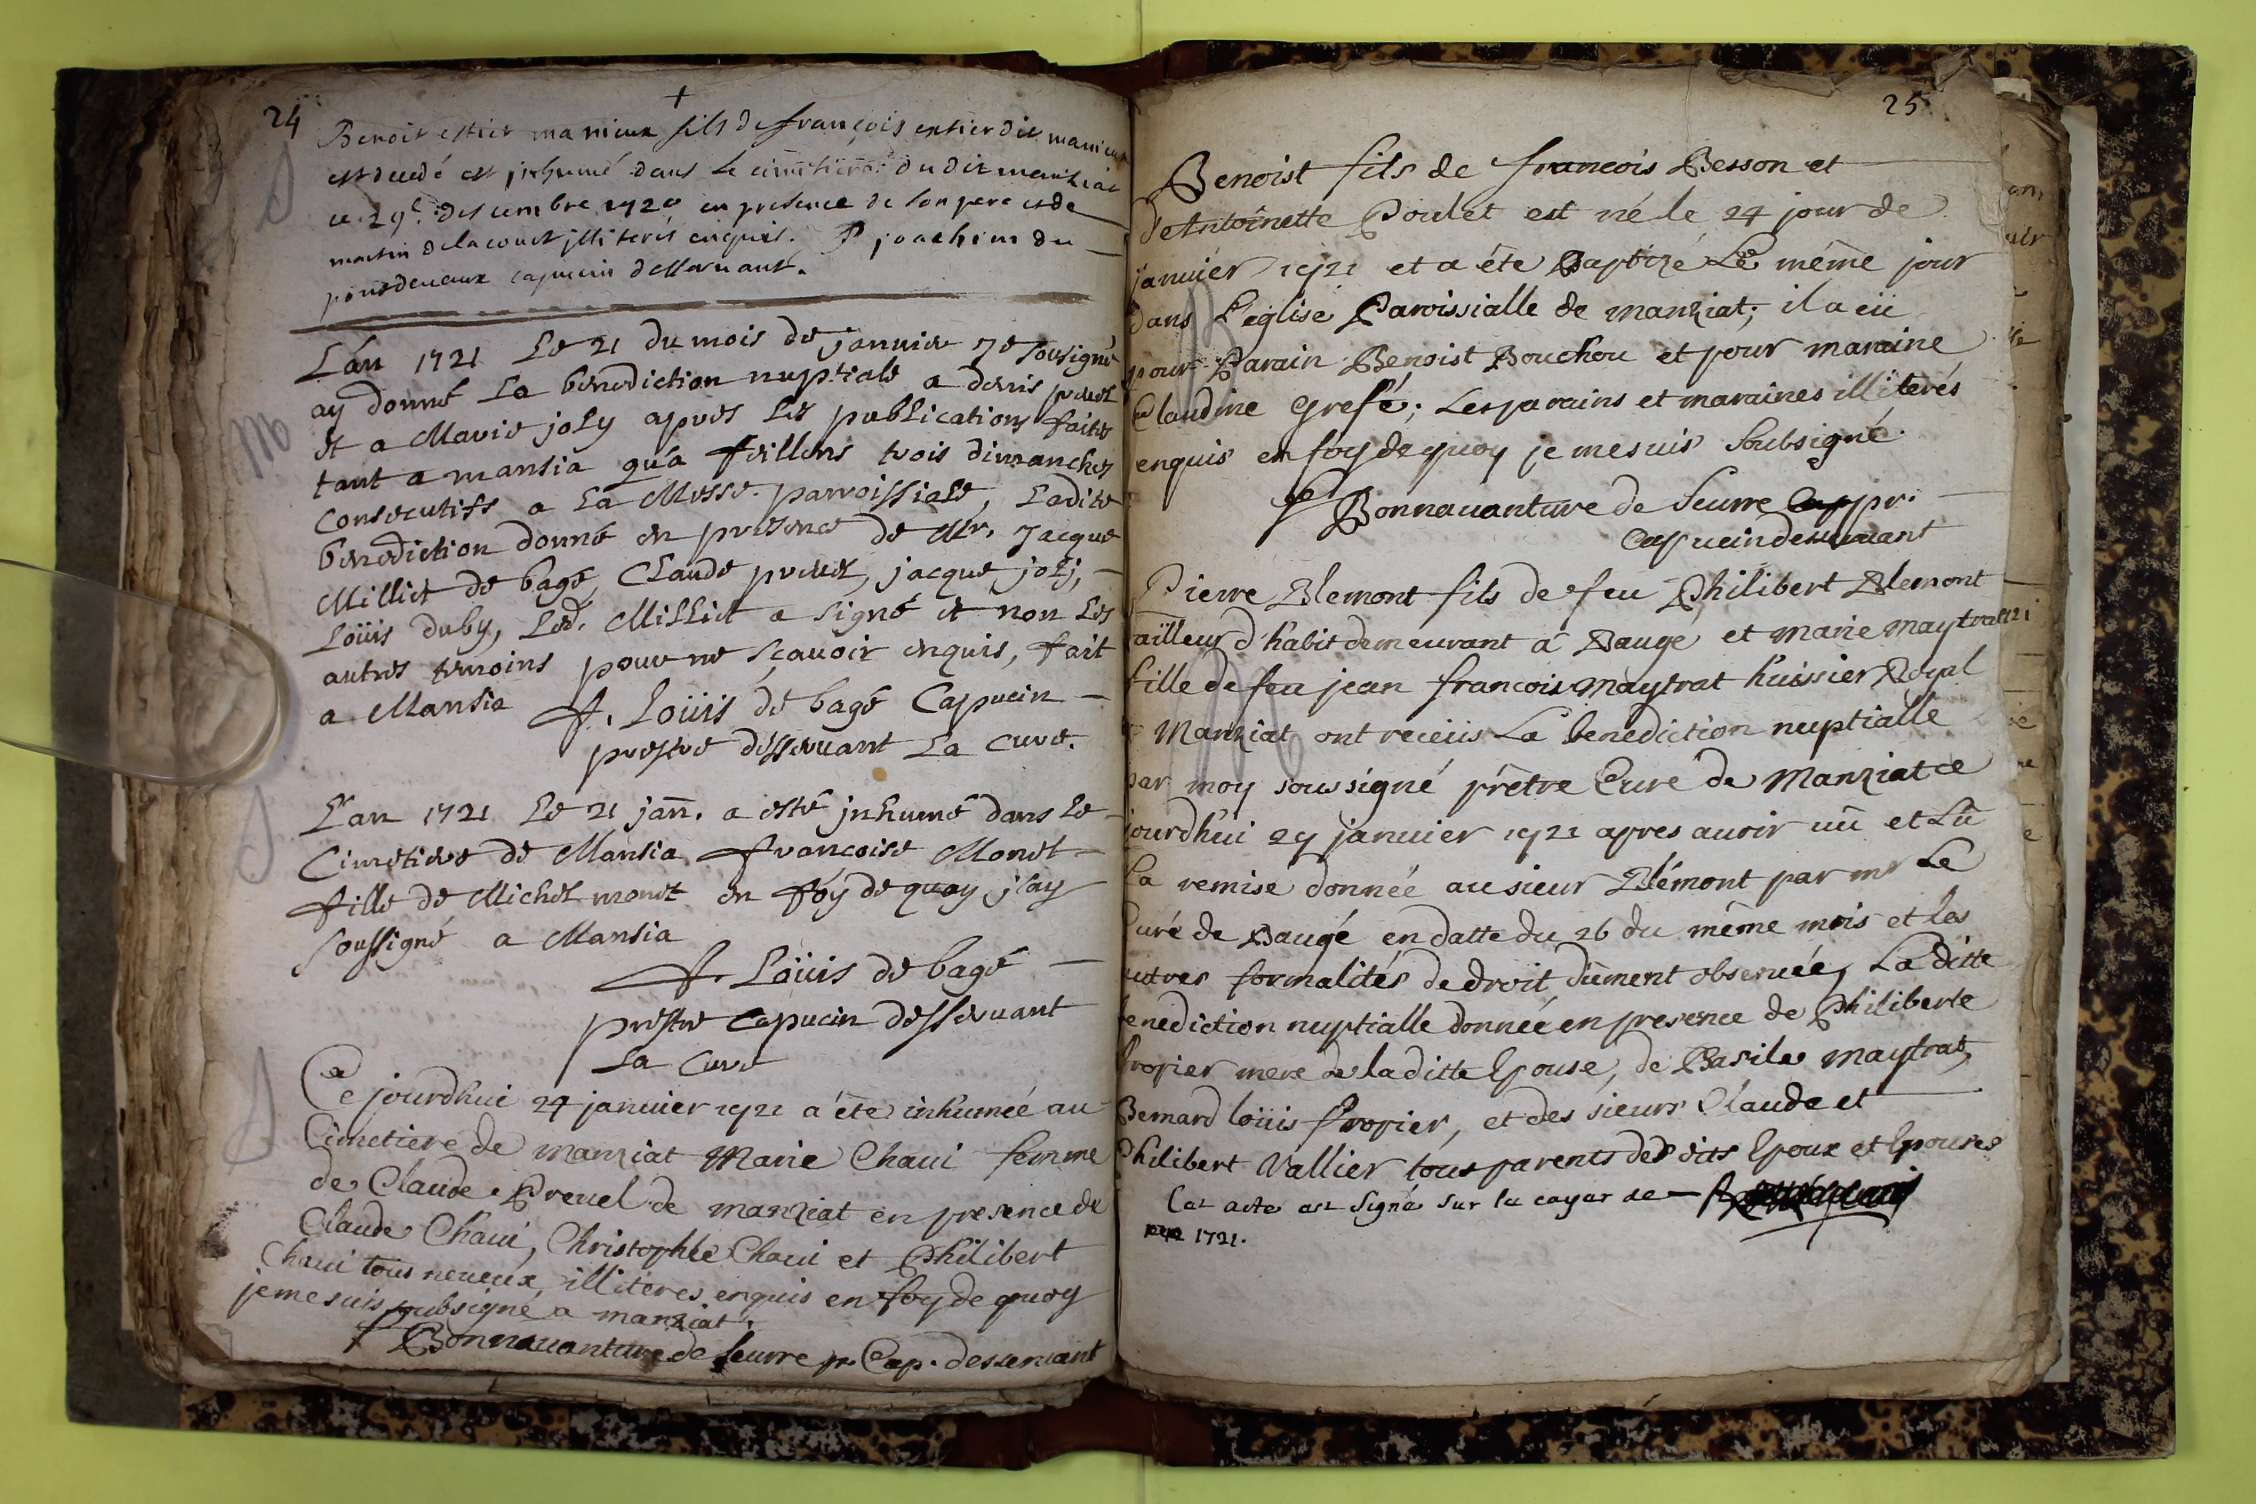 24
Benoit estier manieux fils de françois estier dit manieux
est decedé est jnhumé dans le cimitiere du dit manziat
ce 29e. descembre 1720 en presence de son pere et de
martin delacourt jlliterés enquis. P joachim du
pontdevaux capucin desservant.
L'an 1721 Le 21 du mois de janvier Je sousigné
ay donné La benediction nuptiale a denis preuel
et a Marie joly apres les publications faites
tant a mansia qu'a ffeillens trois dimanches
Consecutifs a La Messe parroissiale, Ladite
benediction donné en presence de Mr. Jacque
Milliet de bagé, Claude preuel, jacque joly,
Loüis duby, Led. Milliet a signé et non Les
autres temoins pour ne sçauoir enquis, fait
a Mansia f. Loüis de bagé Capucin
prestre desseruant La Cure.
M
L'an 1721 Le 21 jan̄. a esté jnhumé dans Le
Cimetiere de Mansia francoise Monet
fille de Michel monet en foy de quoy j'ay
soussigné a Mansia
f. Loüis de bagé
prestre capucin desseruant
La Cure
Ce jourdhui 24 januier 1721 a été inhumée au
Cimetiere de manziat Marie Chaui femme
de Claude Preuel de manziat en presence de
Claude Chaui, Christophle Chaui et Philibert
Chaui tous neueux, illiteres enquis en foy de quoy
je me suis subsigné a manziat.
f Bonnauanture de seurre pr. Cap. desseruant
25
Benoist fils de francois Besson et
d'Antoinette Poulet est né le 24 jour de
januier 1721 et a été Baptizé Le même jour
dans l'eglise Paroissialle de manziat; il a eü
pour Parain Benoist Bouchou et pour maraine
Claudine Grefé; Les parains et maraines illiterés
enquis en foy de quoy je me suis soubsigné.
f Bonnauanture de seurre pr.
Capucin desseruant
Pierre Blemont fils de feu Philibert Blemont
tailleur d'habit demeurant á Baugé, et marie maytrat
fille de feu jean francois maytrat huissier Royal
Manziat ont receüs La benediction nuptialle
par moy soussigné prêtre Curé de Manziat ce
jourdhui 29 januier 1721 apres auoir vû et Lû
La remise donnée au sieur Blémont par mr Le
Curé de Baugé en datte du 26 du même mois et les
autres formalités de droit dûment obseruée, La ditte
benediction nuptialle donnée en presence de Philiberte
fropier mere de la ditte Epouse, de Basile maytrat,
Bernard loüis fropier, et des sieurs Claude et
Philibert Vallier tous parents desdits Epoux et Epouses
Cet acte est signé sur le cayer de
1721.